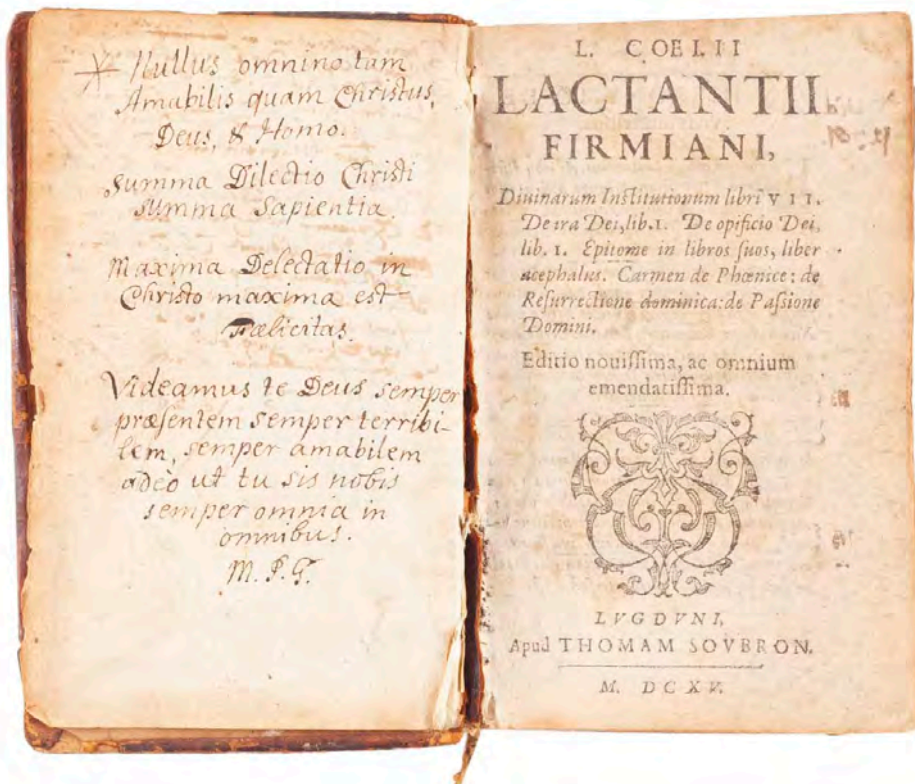 Nullus omnino tam
Amabilis quam Christus,
Deus, & Homo.
Summa Dilectio Christi
summa Sapientia.
Maxima Delectatio in
Christo maxima est
Fælicitas.
Videamus te Deus semper
præsentem semper terribi-
lem, semper amabilem
adeò ut tu sis nobis
semper omnia in
omnibus.
M. P. G.
L. COELII
LACTANTII
FIRMIANI,
Diuinarum Institutionum libri VII.
De ira Dei, lib. I. De opificio Dei,
lib. I. Epitome in libros suos, liber
acephalus. Carmen de Phœnice: de
Resurrectione dominica: de Passione
Domini.
Editio nouissima, ac omnium
emendatissima.
LVGDVNI,
Apud THOMAM SOVBRON.
M. DCXV.